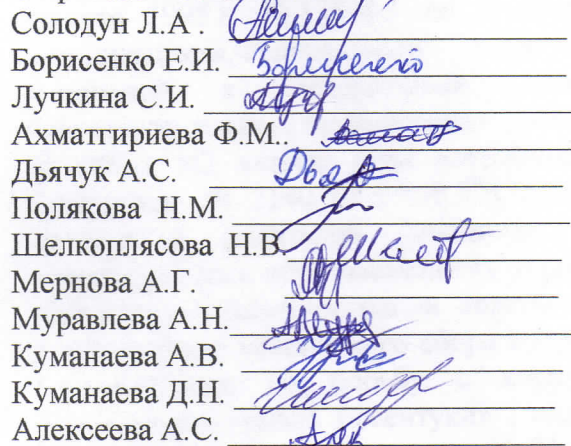 Солодун Л.А .
Борисенко Е.И. Борисенко
Лучкина С.И.
Ахматгириева Ф.М..
Дьячук А.С.
Полякова Н.М.
Шелкоплясова Н.В.
Мернова А.Г.
Муравлева А.Н.
Куманаева А.В.
Куманаева Д.Н.
Алексеева А.С.